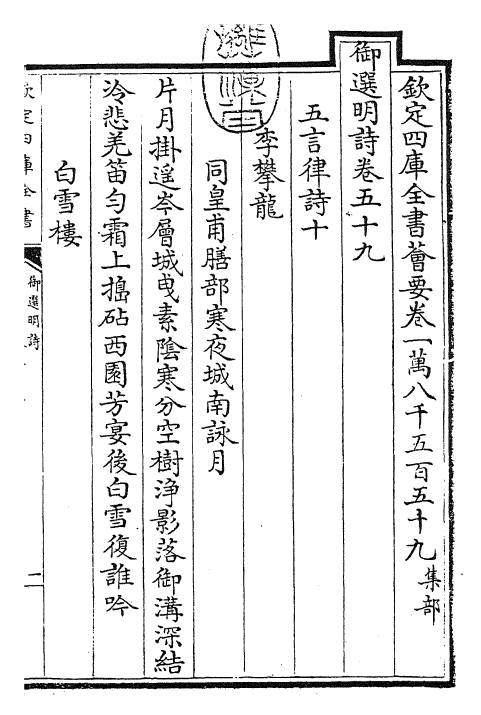 欽定四庫全書薈要卷一萬八千五百五十九集部
御選明詩卷五十九
五言律詩十
李攀龍
同皇甫膳部寒夜城南詠月
片月掛遥岑層城曵素陰寒分空樹浄影落御溝深結
冷悲羌笛勻霜上搗砧西園芳宴後白雪復誰吟
白雪樓
欽定四庫全書
御選明詩